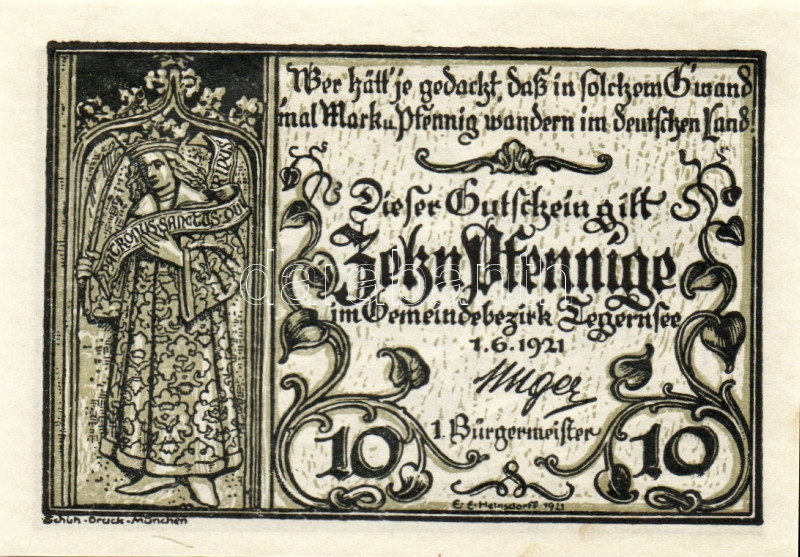 Wer hätt' je gedacht, daß in solchem G'wand
mal Mark u. Pfennig wandern im deutschen Land.
Dieser Gutschein gilt
Zehn Pfennige
im Gemeindebezirk Tegernsee
1.6.1921
1. Bürgermeister
10
10
SANCTUS
Schuh-Druck-München
E. E. Heinsdorff 1921
darabanth